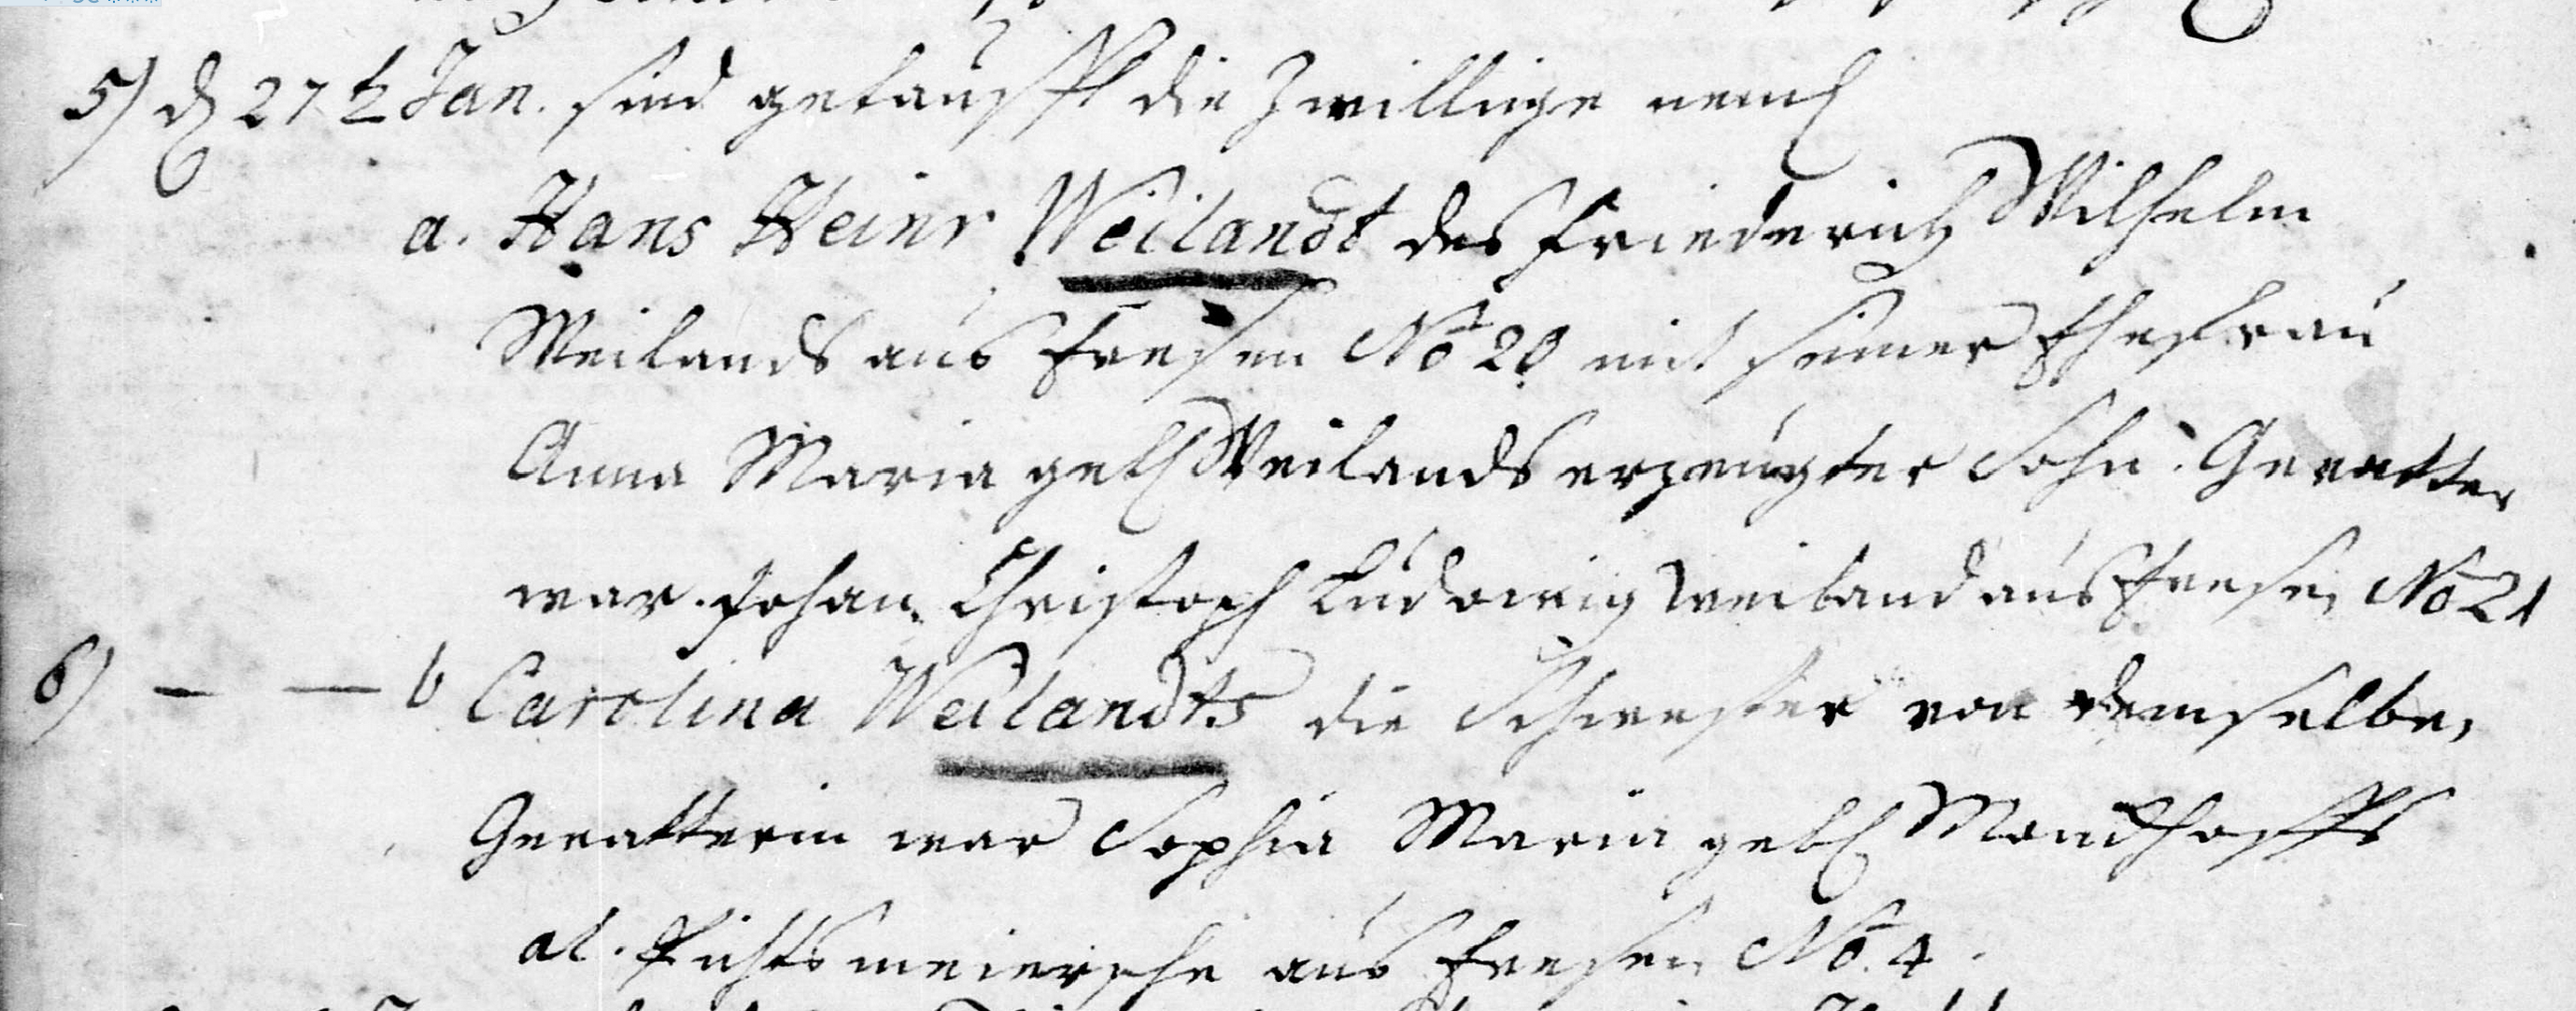 5) d 27t Jan. sind getaufft die Zwillinge neml
a. Hans Heinr Weilandt des Friederich Wilhelm
Weilands aus Freesen No 20 mit seiner Ehefrau
Anna Maria geb Weilands erzeugter Sohn. Gevatter
war Johan Christoph Ludowig Weiland aus Freesen No 21
6) — — b Carolina Weilandts die Schwester von demselben
Gevatterin war Sophia Maria geb Mondhoffs
al. aus Freesen No. 4.